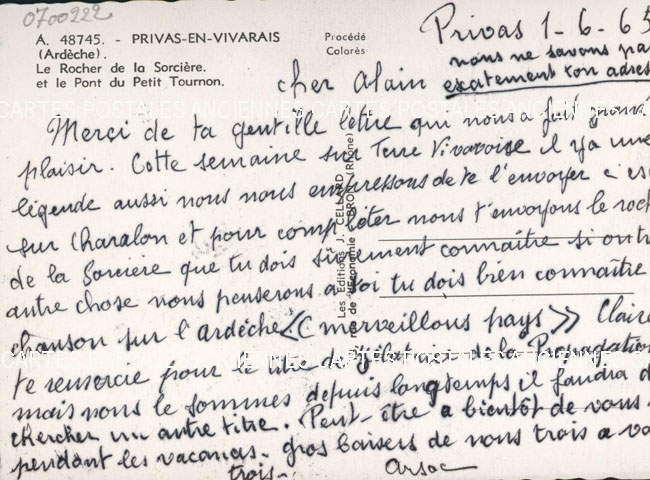 0700222
A. 48745. - PRIVAS-EN-VIVARAIS
(Ardèche).
Le Rocher de la Sorcière.
et le Pont du Petit Tournon.
Procédé
Colorès
Privas 1-6-65
nous ne savons pas
exatement ton adres
cher Alain
Merçi de ta gentille lètre qui nous a fait gran
plaisir. Cette semaine sur Terre Vivaroise il y a une
légende aussi nous nous empressons de te l'envoyer c'es
sur Charalon et pour complèter nous t'envoyons le roch
de la Sorcière que tu dois sûrement connaître si on tr
autre chose nous penserons a toi tu dois bien connaître
chanson sur l'ardèche << C merveillous païs >> Claire
te remercie pour le titre de
mais nous le sommes depuis longtemps il faudra
chercher un autre titre. Peut-être a bientôt de vous
pendant les vacances. gros baisers de nous trois a vo
trois.
Arsac
Les Editions J. CELLARD
rue de l'Economie - BRON (Rhône)
CARTES POSTALES ANCIENNES
CARTES POSTALES ANCIENNES